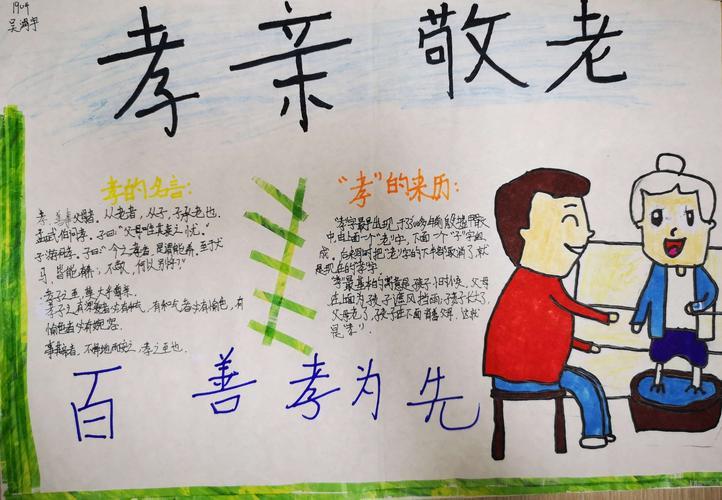 1904
吴鸿宇
孝亲敬老
孝的名言:
孝,善事父母者,从老省,从子,子承老也.
孟武伯问孝。子曰:"父母唯其疾之忧。"
子游问孝。子曰:"今之孝者,是谓能养。至于犬
马,皆能有养,不敬,何以别乎?"
孝子之至,莫大乎尊亲。
孝子之有深爱者必有和气,有和气者必有愉色,有
愉色者必有婉容.
事其亲者,不择地而安之,孝之至也.
"孝"的来历:
孝字最早出现于3000多年前殷墟甲骨文
中,由上面一个"老"字,下面一个"子"字组
成。后来同时把"老"字的下半部取消了,就
是现在的"孝"字
"孝"最基本的寓意是:孩子小时候,父母
在上面为孩子遮风挡雨;孩子长大了,
父母老了,孩子在下面背负父母,这就
是"孝"!
百善孝为先